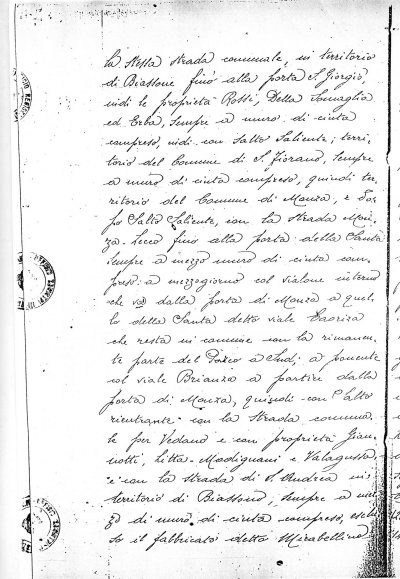 la stessa strada comunale, in territorio
di Biassono fino alla porta S. Giorgio,
indi le proprietà Rossi, Della Somaglia
ed Erba, sempre a muro di cinta
compreso, indi con salto saliente; terri-
torio del Comune di S. Fiorano, sempre
a muro di cinta compreso, quindi ter-
ritorio del Comune di Monza, e do-
po salto saliente, con la strada Mon-
za-Lecco fino alla porta della Santa
sempre a mezzo muro di cinta com-
preso: a mezzogiorno col vialone interno
che va dalla porta di Monza a quel-
lo della Santa detto viale
che resta in comune con la rimanen-
te parte del Parco a Sud; a ponente
col viale Brianza a partire dalla
porta di Monza, quindi con salto
rientrante con la strada comuna-
le per Vedano e con proprietà Gian-
notti, Litta-Modignani e Valagussa
e con la strada di S. Andrea in
territorio di Biassono, sempre a mez-
zo di muro di cinta compreso, esclu-
so il fabbricato detto Mirabellino